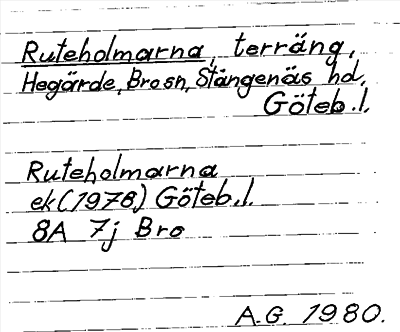 Ruteholmarna, terräng,
Hegärde, Bro sn, Stångenäs hd,
Göteb.l.
Ruteholmarna
ek(1978) Göteb.l.
8A 7j Bro
A.G. 1980.